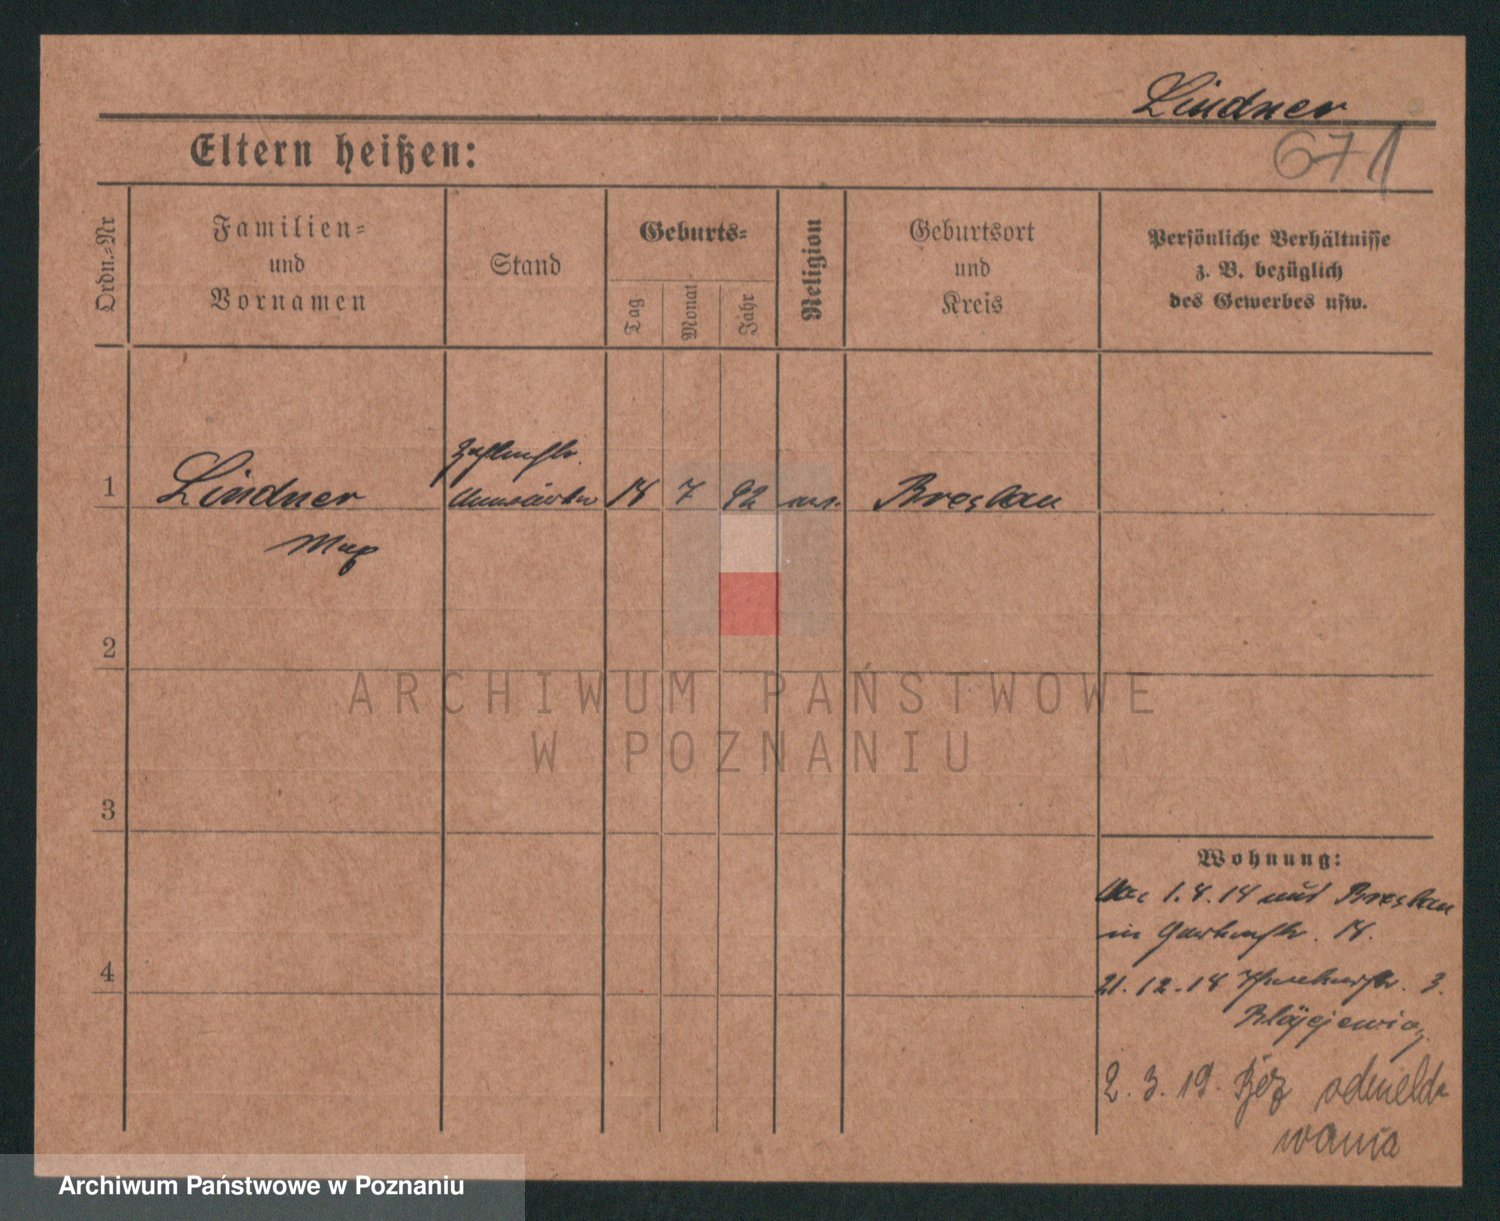 Lindner
671
Eltern heißen:
Ordn.=Nr
Familien=
und
Vornamen
Stand
Geburts=
Tag
Monat
Jahr
Religion
Geburtsort
und
Kreis
Persönliche Verhältnisse
z. B. bezüglich
des Gewerbes usw.
1
Lindner
Max
14 7 92
Breslau
2
ARCHIWUM PAŃSTWOWE
W POZNANIU
3
Wohnung:
1.4.14 aus Breslau
in 14.
4
21.12.18 3.
2. 3. 19. Bez odmeldo
wania
Archiwum Państwowe w Poznaniu